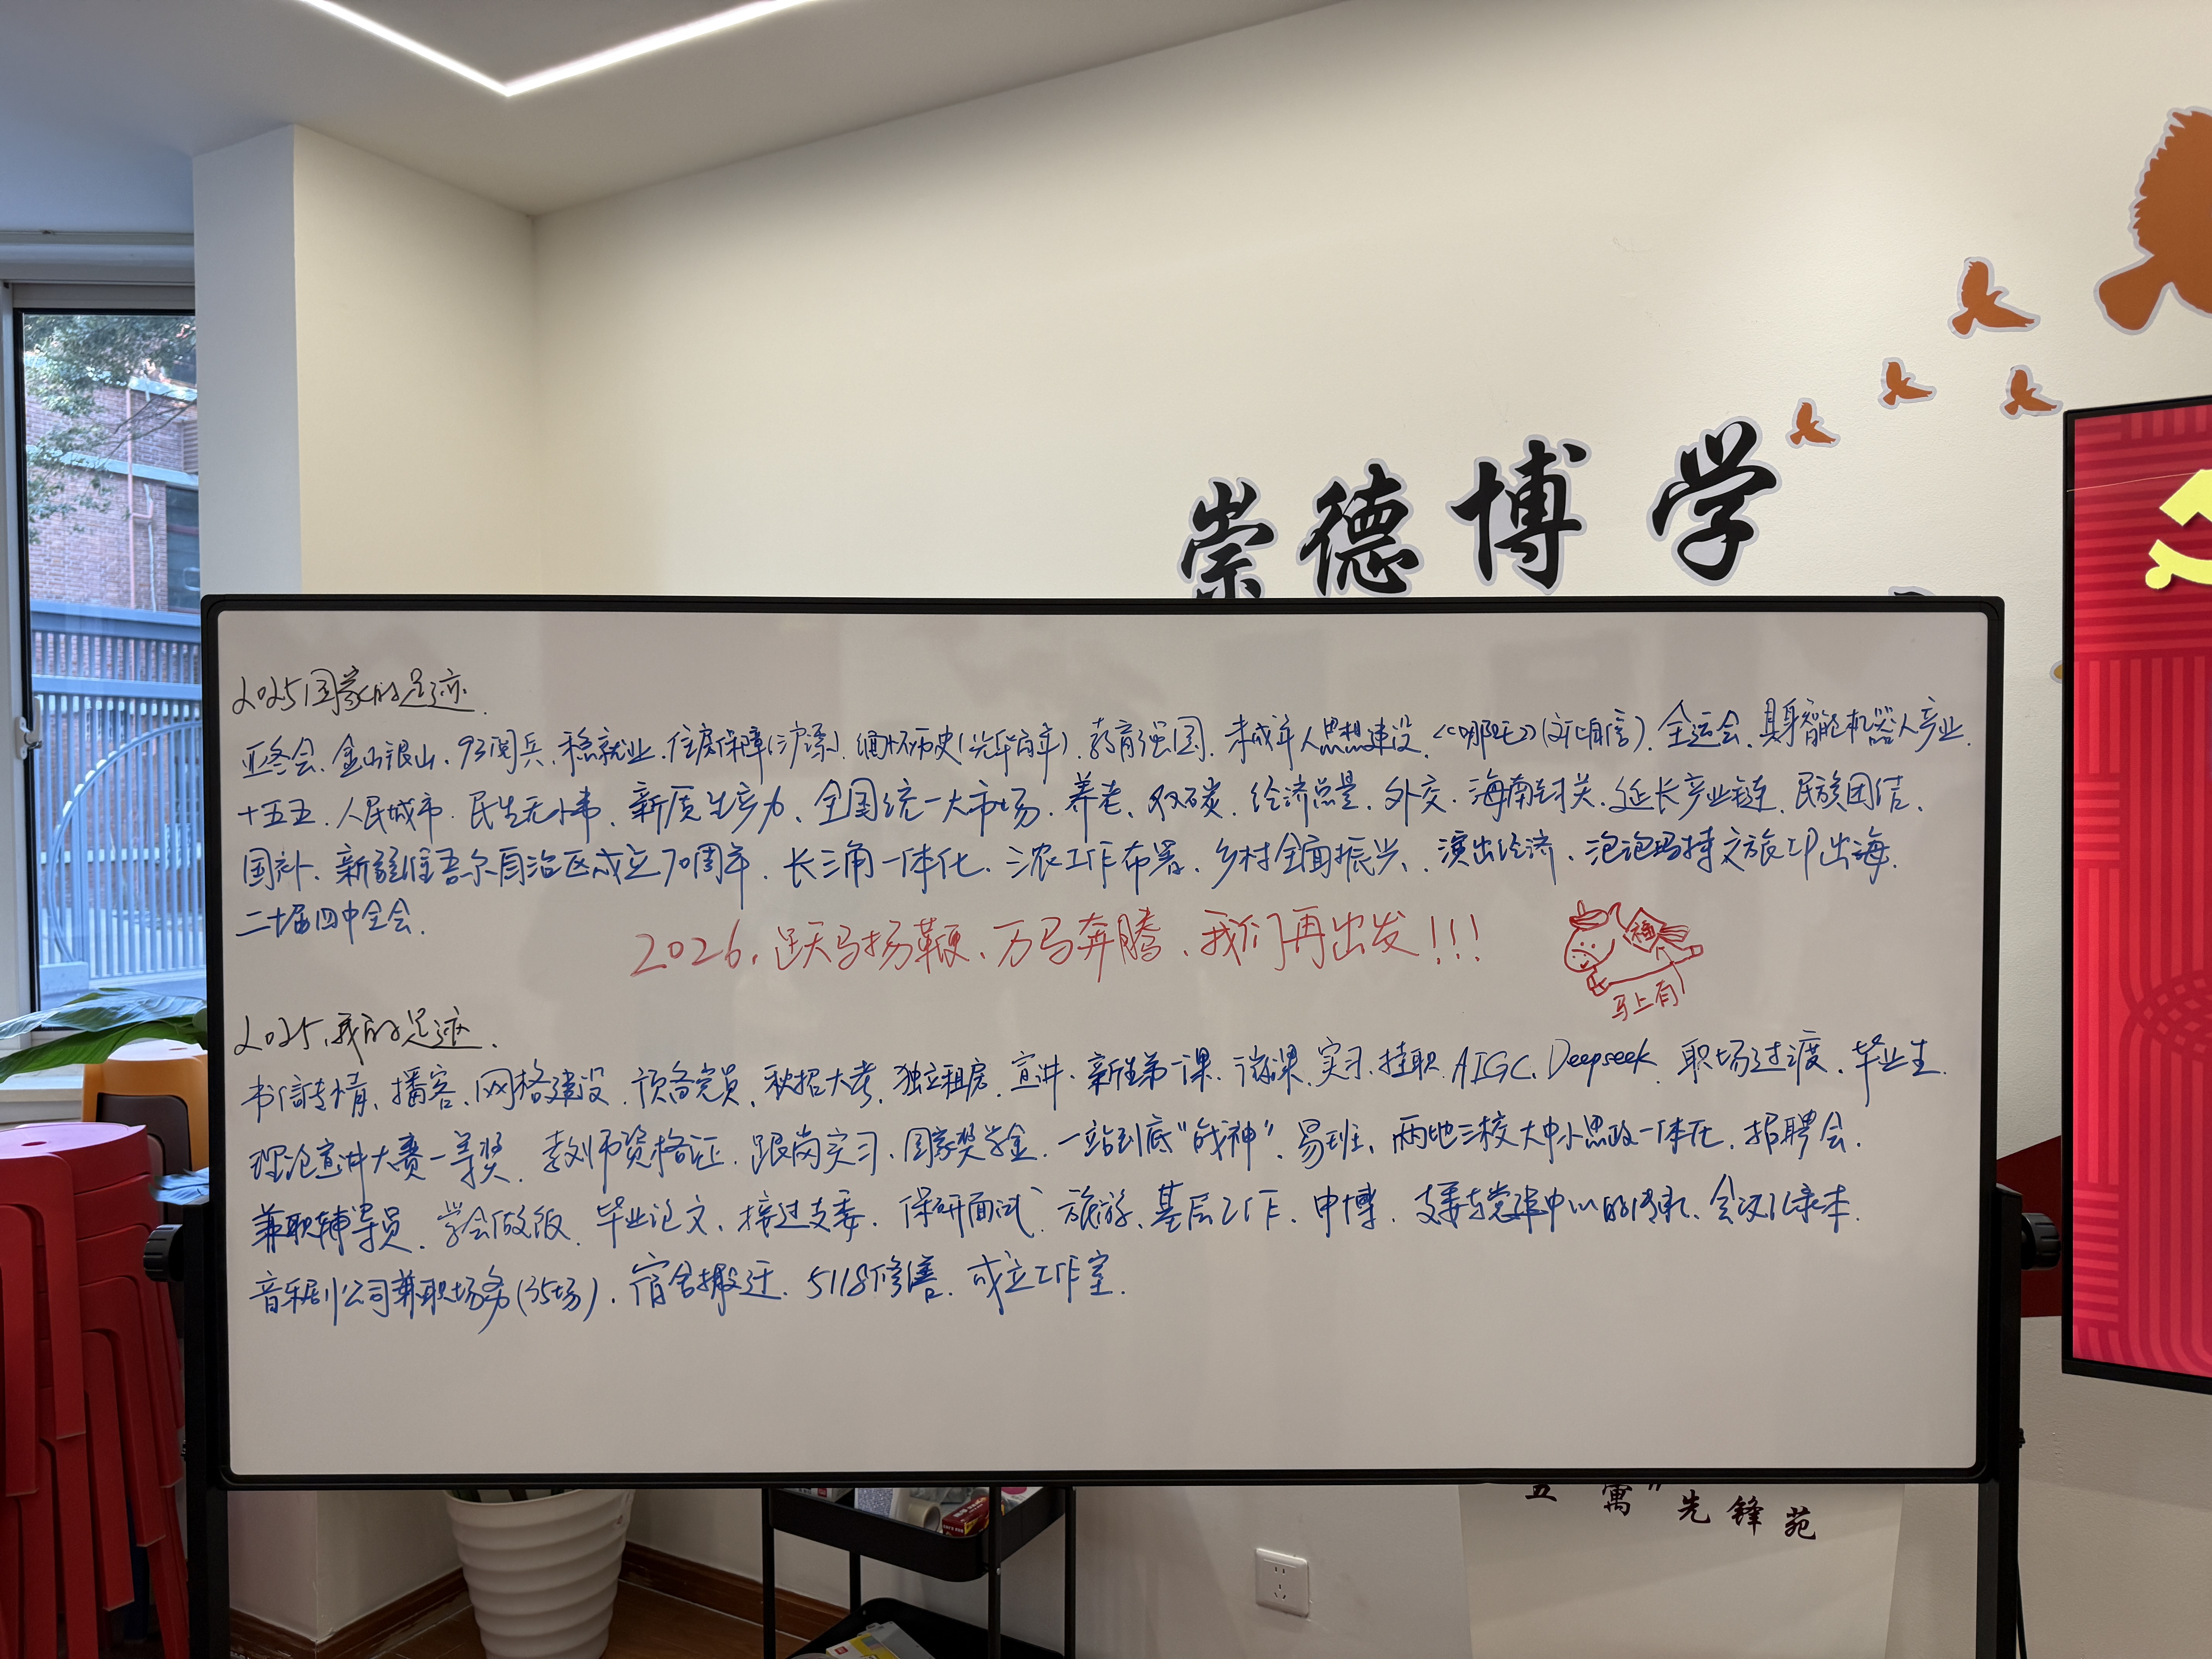 崇德博学
2025,国家的足迹.
亚冬会、金山银山、93阅兵、稳就业、住房保障(沪漂)、缅怀历史(光华百年)、教育强国、未成年人思想建设、《哪吒》(文化自信)、全运会、具身智能机器人产业、
十五五、人民城市、民生无小事、新质生产力、全国统一大市场、养老、双碳、经济总量、外交、海南封关、延长产业链、民族团结、
国补、新疆维吾尔自治区成立70周年、长三角一体化、三农工作布署、乡村全面振兴、演出经济、泡泡玛特文旅IP出海、
二十届四中全会.
2026,跃马扬鞭、万马奔腾、我们再出发!!!
福
马上有
2025,我的足迹.
书信传情、播客、网格建设、预备党员、秋招大考、独立租房、宣讲、新生第一课、微课、实习、挂职、AIGC、Deepseek、职场过渡、毕业生、
理论宣讲大赛一等奖、教师资格证、跟岗实习、国家奖学金、一站到底"战神"、易班、两地三校大中小思政一体化、招聘会、
兼职辅导员、学会做饭、毕业论文、接过支委、保研面试、旅游、基层工作、申博、支委与党建中心的传承、会议记录本、
音乐剧公司兼职场务(35场)、宿舍搬迁、5118修缮、成立工作室.
五 寓"先锋苑